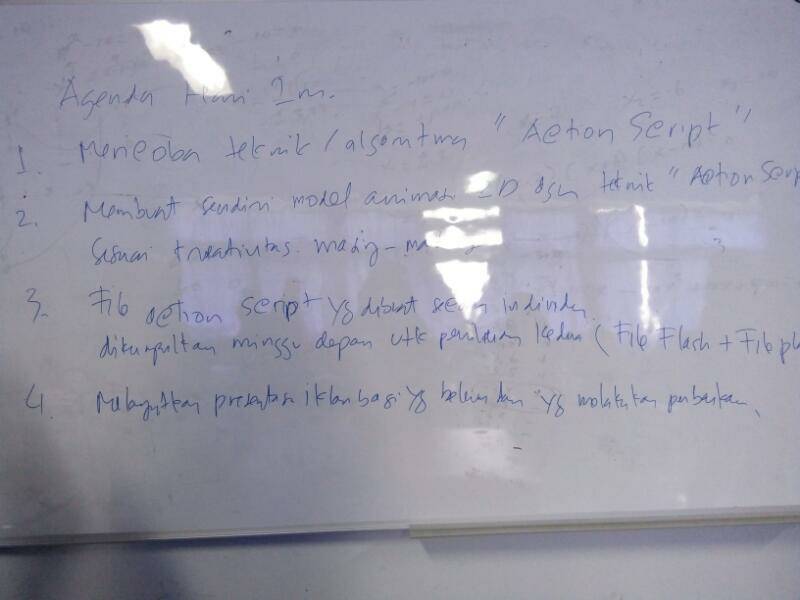 Agenda Hari Ini.
1. Mencoba teknik / algoritma "Action Script"
2. Membuat sendiri model animasi 2D dgn teknik "Action Scrip
Sesuai kreativitas masing-ma
3. File action script yg dibuat secara individu
dikumpulkan minggu depan utk penilaian kedua (File Flash + File
4. Melanjutkan presentasi iklan bagi yg belum dan yg melakukan perbaikan.